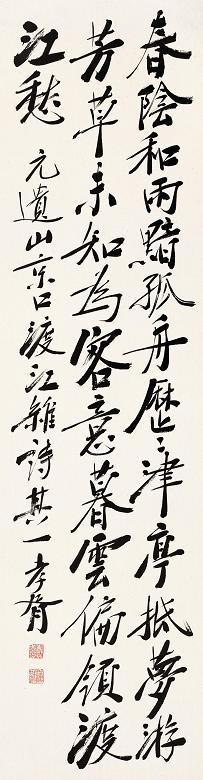 春陰和雨黯孤舟歷歷津亭抵夢游
芳草未知為客意暮雲偏領渡
江愁
元遺山京口渡江雜詩其一孝胥